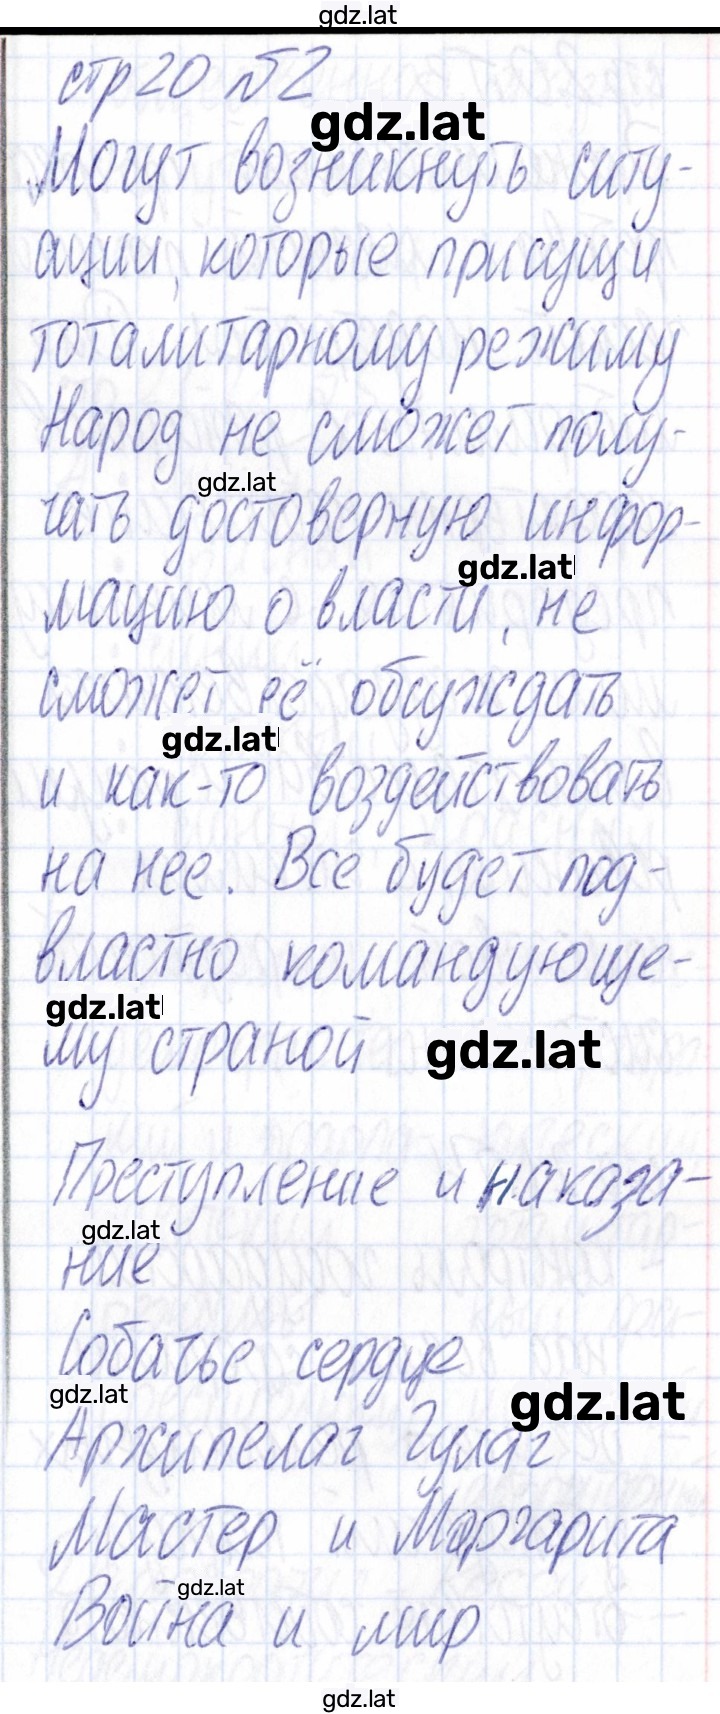 gdz.lat
стр 20 №2
gdz.lat
Могут возникнуть ситу-
ации, которые присущи
тоталитарному режиму
Народ не сможет полу-
gdz.lat
чать достоверную инфор-
gdz.lat
мацию о власти, не
сможет её обсуждать
gdz.lat
и как-то воздействовать
на нее. Все будет под-
властно командующе-
gdz.lat
му страной
gdz.lat
Преступление и наказа-
gdz.lat
ние
Собачье сердце
gdz.lat
gdz.lat
Архипелаг Гулаг
Мастер и Маргарита
gdz.lat
Война и мир
gdz.lat